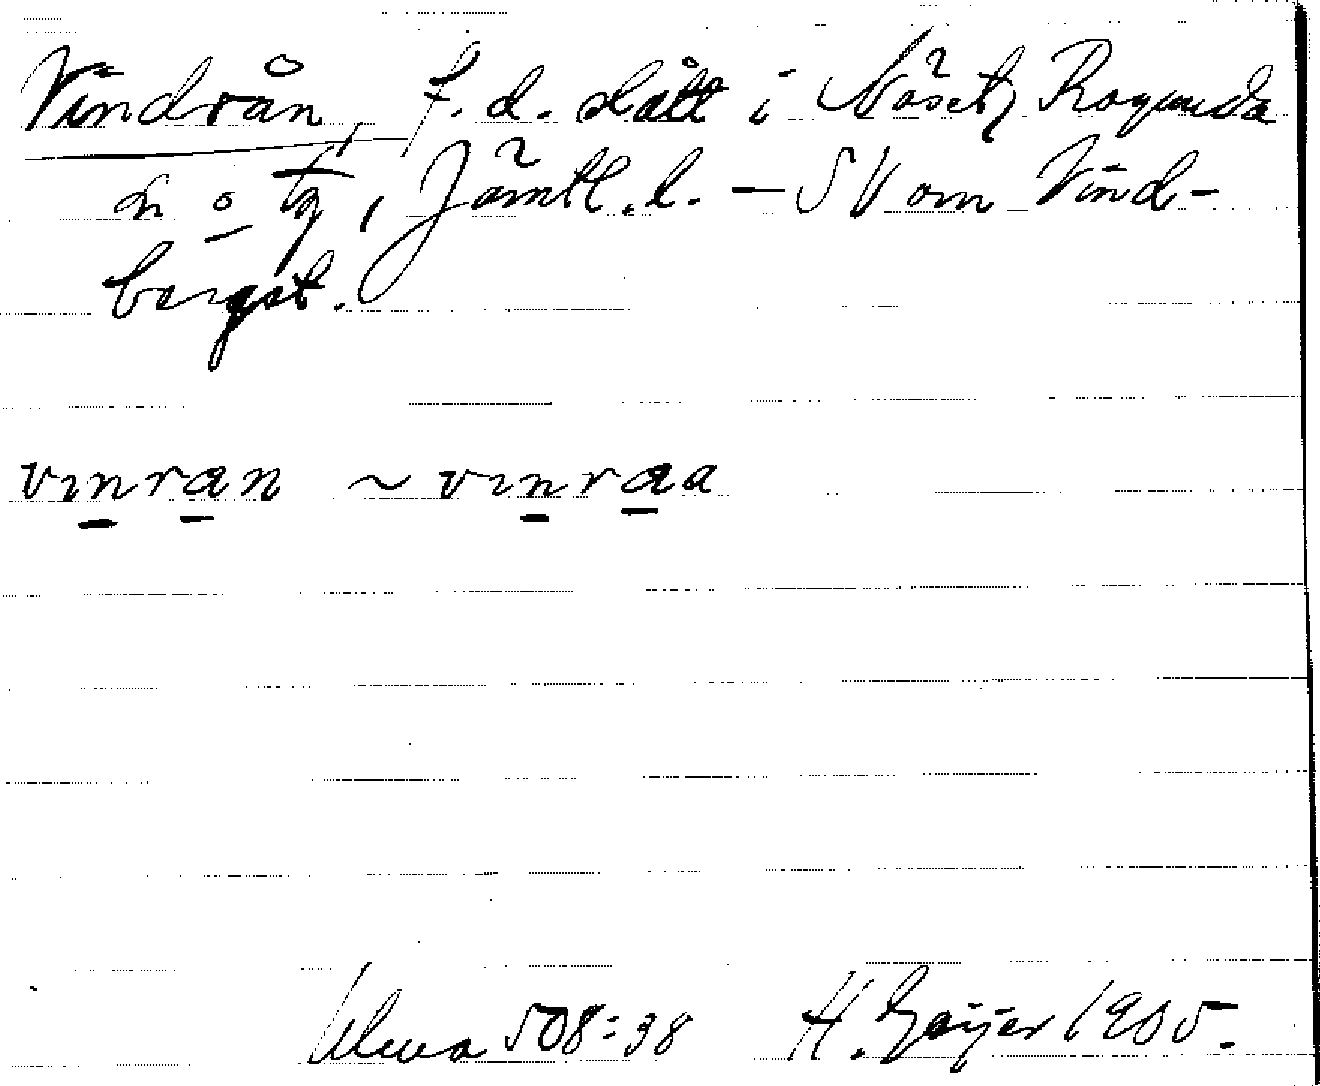 Vindrån, f.d. slått i Näset, Ragunda
sn o tg, Jämtl.l. – SV om Vind-
berget.
vınran ~ vınraa
Ulma 508:38 H. Geijer 1905.